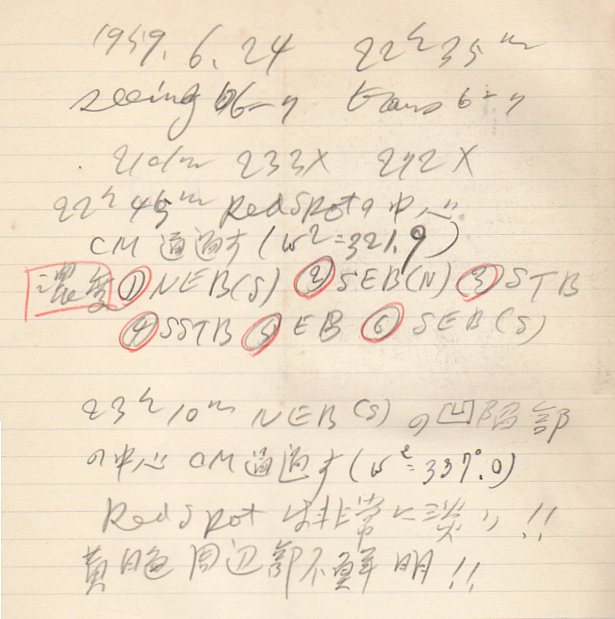 1959. 6. 24 22h 35m
seeing 6-7 trans 6-7
21cm 233X 272X
22h 46m Red Spotの中心
CM通過す (ω²=321.9)
濃度 ① NEB(S) ② SEB(N) ③ STB
④ SSTB ⑤ EB ⑥ SEB(S)
23h 10m NEB(S)の凹陥部
の中心 CM通過す (ω²=337°.0)
Red Spot は非常に淡い!!
黄白色 周辺部不鮮明!!